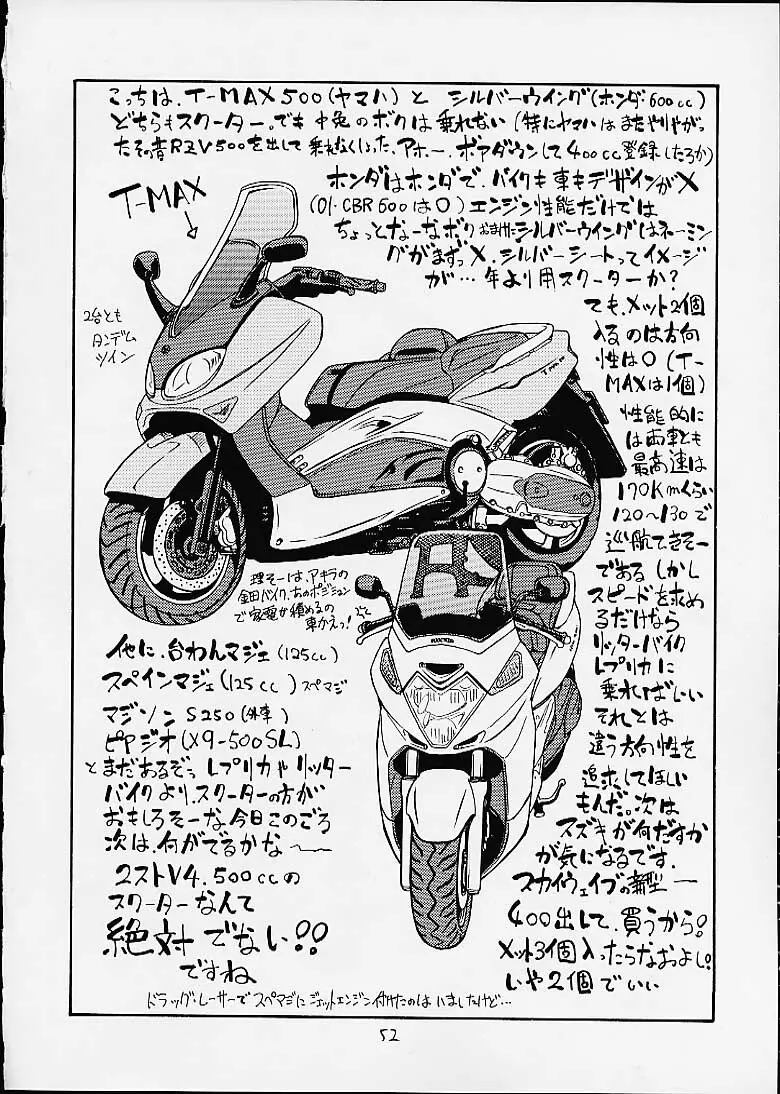 こっちは、T-MAX500(ヤマハ)と シルバーウイング(ホンダ・600cc)
どちらもスクーター。でも中免のボクは乗れない(特にヤマハはまたやりやがっ
たその昔RZV500を出して乗れなくしたった、アホー、ボアダウンして400cc登録したろか)
ホンダはホンダで、バイクも車もデザインが×
(01・CBR600は○)エンジン性能だけでは
ちょっとなーなボク おまけにシルバーウイングはネーミン
グがまずっ×、シルバーシートってイメージ
が…年より用スクーターか?
T-MAX
2台とも
タンデム
ツイン
でも、メット2個
入るのは方向
性は○(T-
MAXは1個)
性能的に
は両車とも
最高速は
170Kmくらい
120〜130で
巡航できそー
である しかし
スピードを求め
るだけなら
リッターバイク
レプリカに
乗ればいい
それとは
違う方向性を
追求してほしい
もんだ。次は
スズキが何だすか
が気になるです.
スカイウェイブの新型—
400出して、買うから!
メット3個入ったらなおよし!
いや2個でいい
理そーは、アキラの
金田バイク、あのポジション
で家電が積めるの
車かえっ!
他に、台わんマジェ(125cc)
スペインマジェ(125cc)スペマジ
マジソンS250(外車)
ピヤジオ(X9-500SL)
とまだあるぞっ レプリカやリッター
バイクより、スクーターの方が
おもしろそーな、今日このごろ
次は、何がでるかな〜
2ストV4.500ccの
スクーターなんて
絶対でない!!
ですね
ドラッグ・レーサーでスペマジにジェットエンジン付けたのはいましたけど…
52